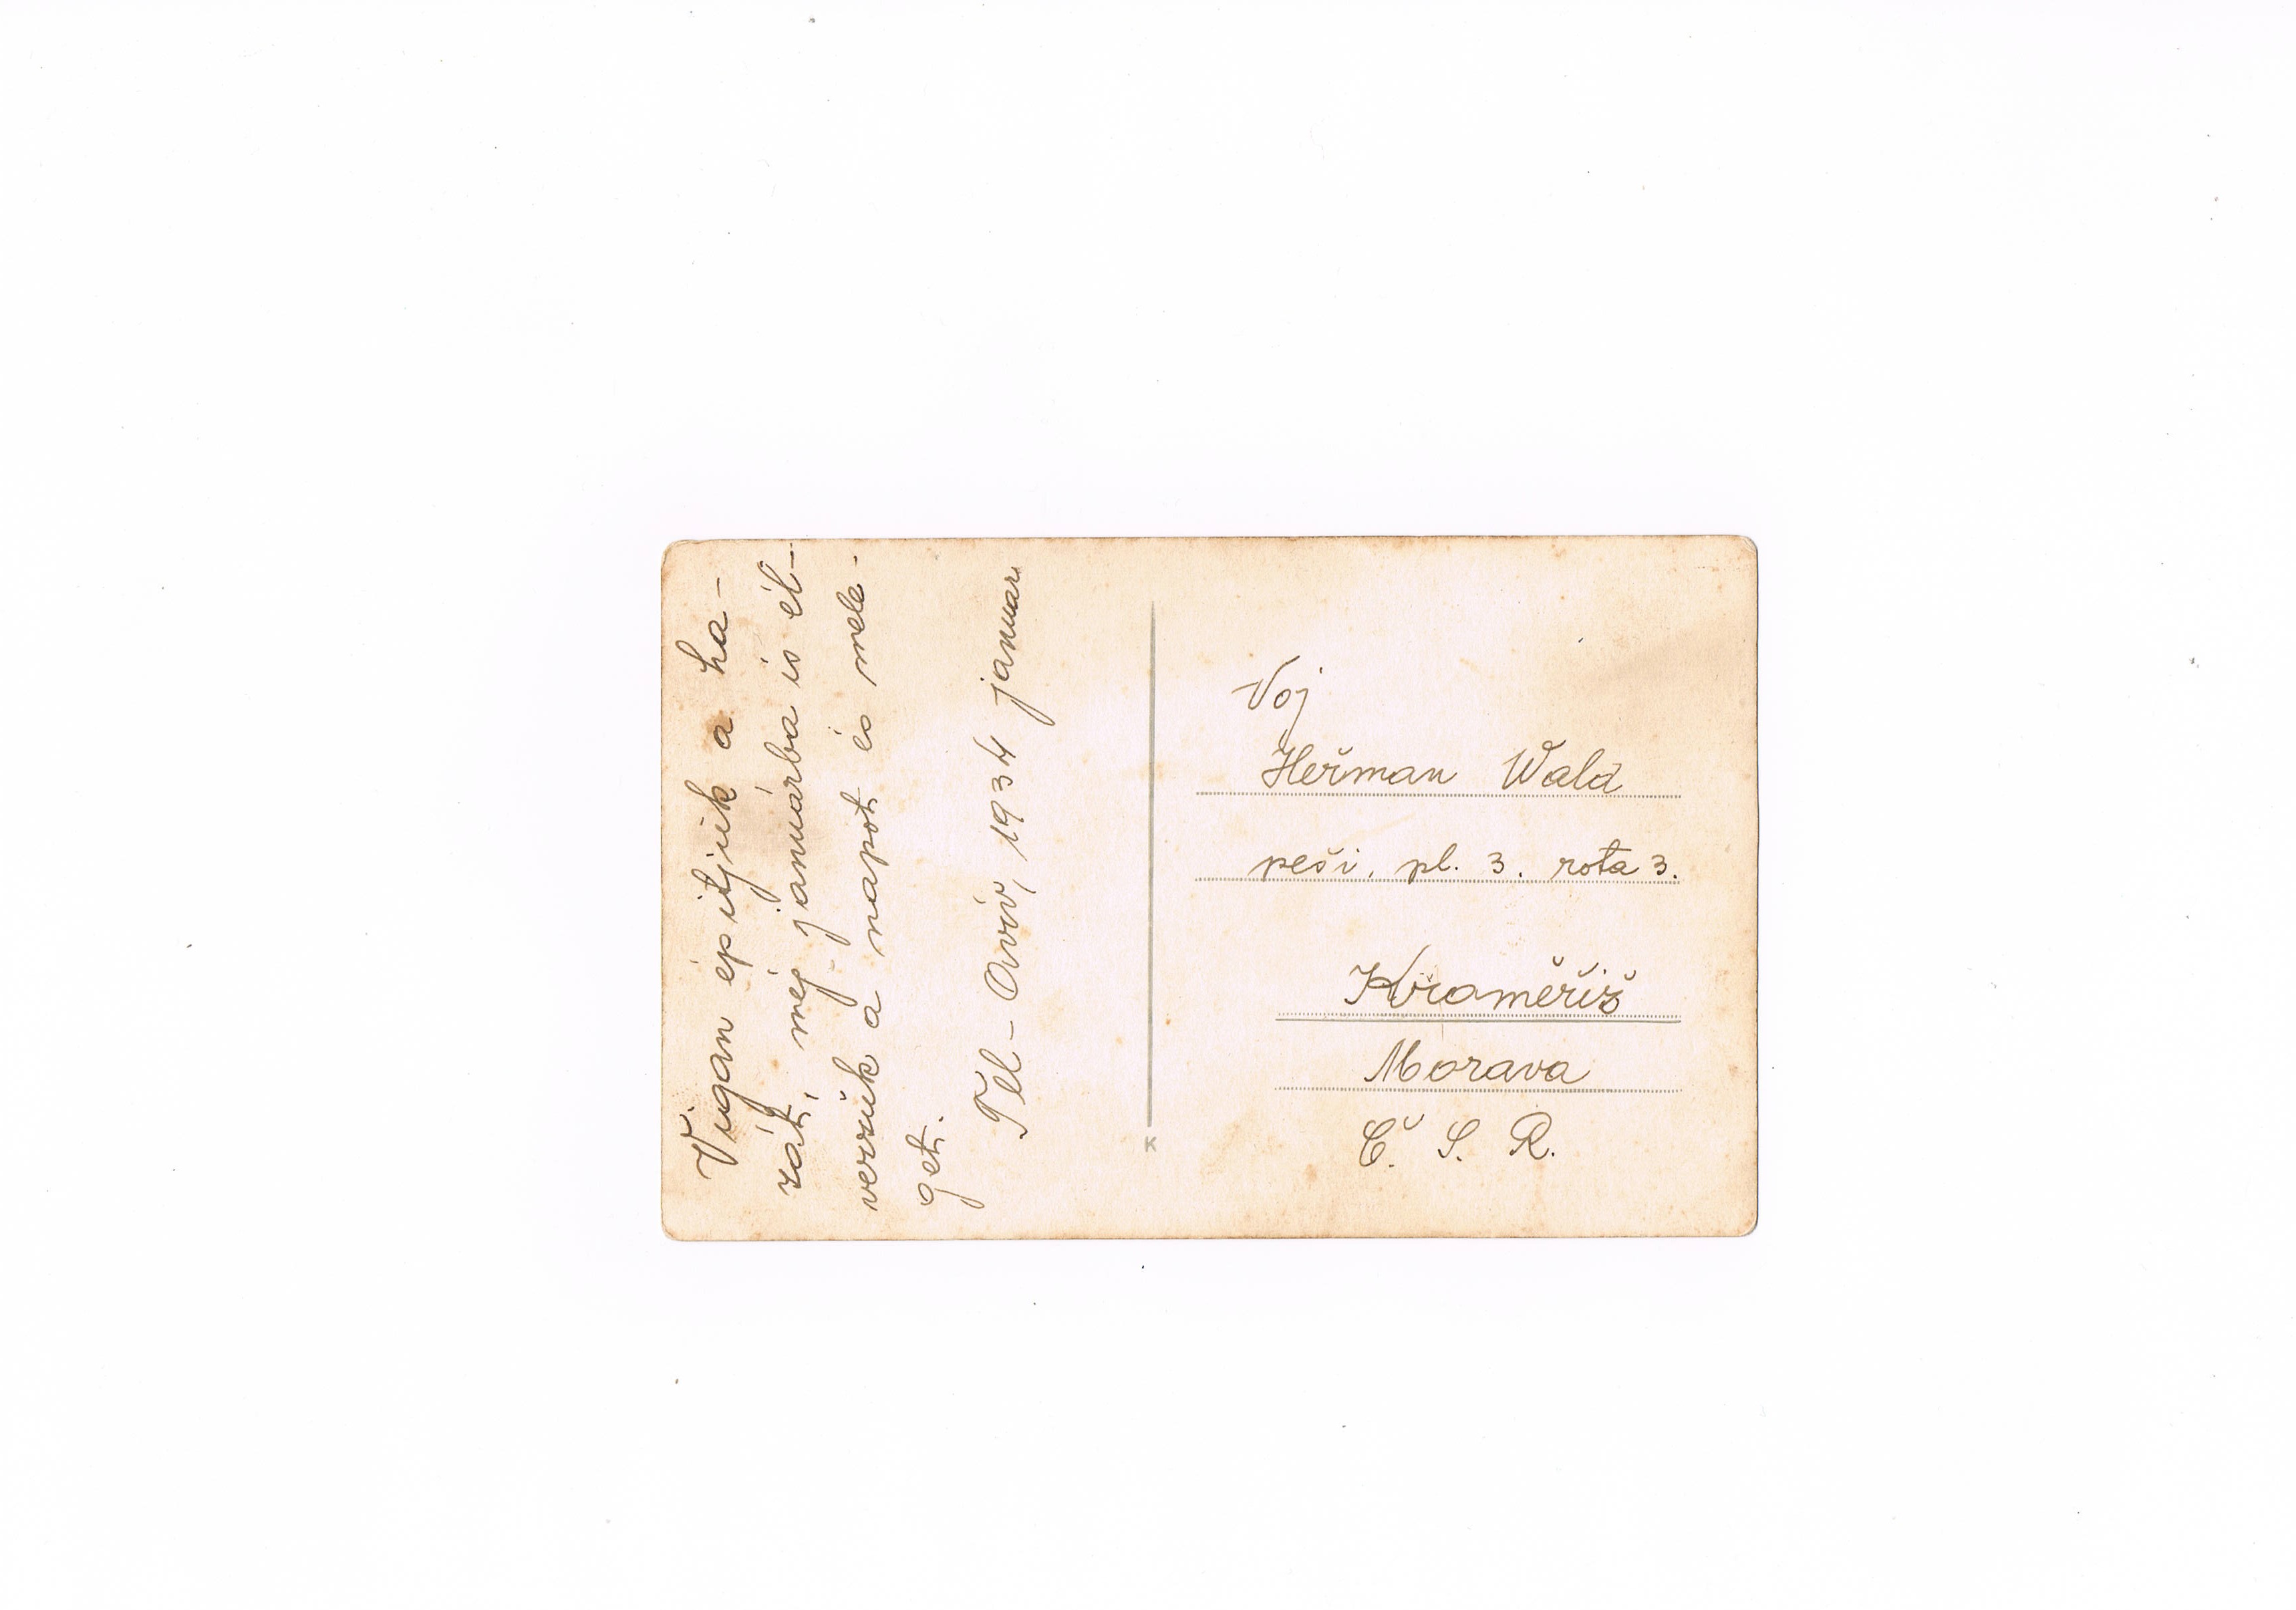 Vigan építjük a ha-
zát, még januárba is él-
vezzük a napot és mele-
get.
Tel-Aviv, 1934 januar
Voj
Heřman Wald
peši. pl. 3. rota 3.
Kraměřiž
Morava
Č. S. R.
K